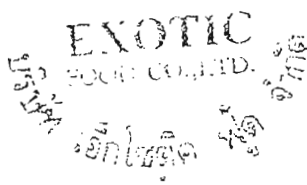 EXOTIC
FOOD CO.,LTD.
บริษัท เอ็กโซติค ฟู้ด จำกัด